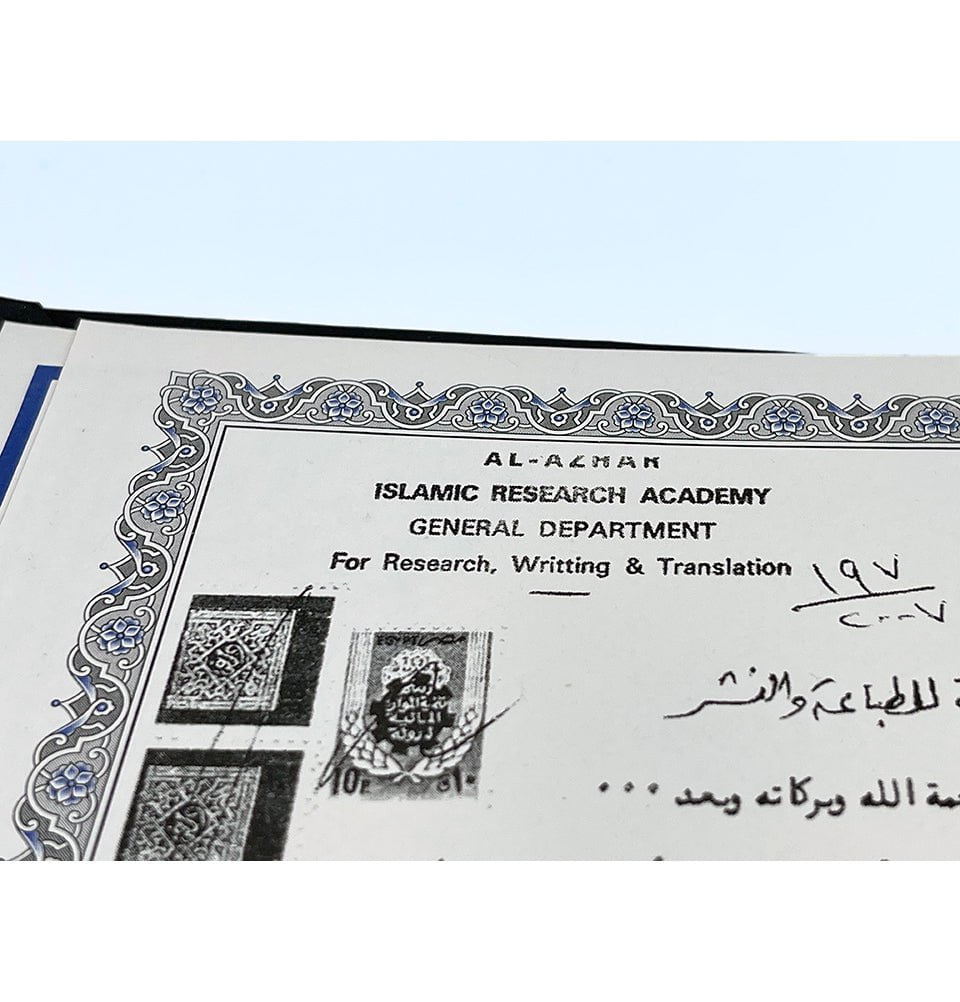 AL-AZHAR
ISLAMIC RESEARCH ACADEMY
GENERAL DEPARTMENT
For Research, Writting & Translation
١٩٧
٢٠٠٧
للطباعة والنشر
الله وبركاته وبعد ...
EGYPT مصر
تنمية الموارد
المالية
للدولة
10P